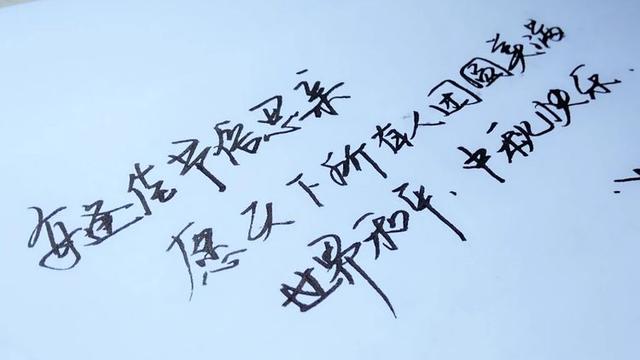 每逢佳节倍思亲
愿天下所有人团圆美满
世界和平、中秋快乐.